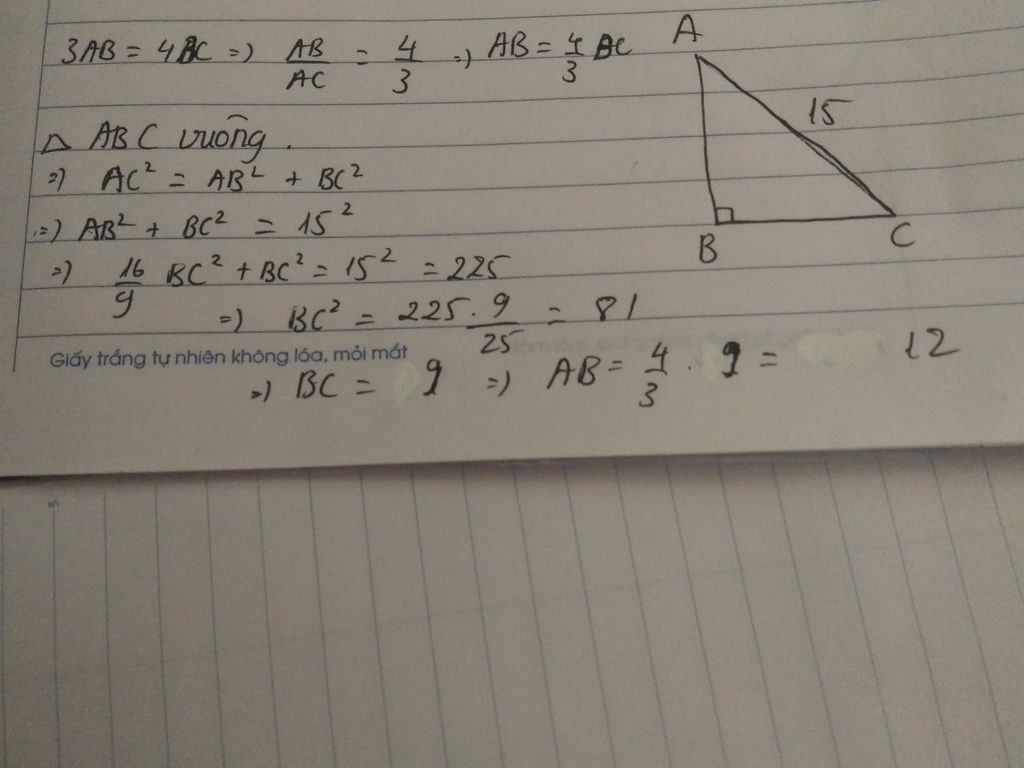 3AB = 4BC => AB/AC = 4/3 => AB = 4/3 BC
Δ ABC vuông.
=> AC² = AB² + BC²
=> AB² + BC² = 15²
=> 16/9 BC² + BC² = 15² = 225
=> BC² = 225.9/25 = 81
Giấy trắng tự nhiên không lóa, mỏi mắt
=> BC = 9 => AB = 4/3 . 9 = 12
A
15
B
C
5